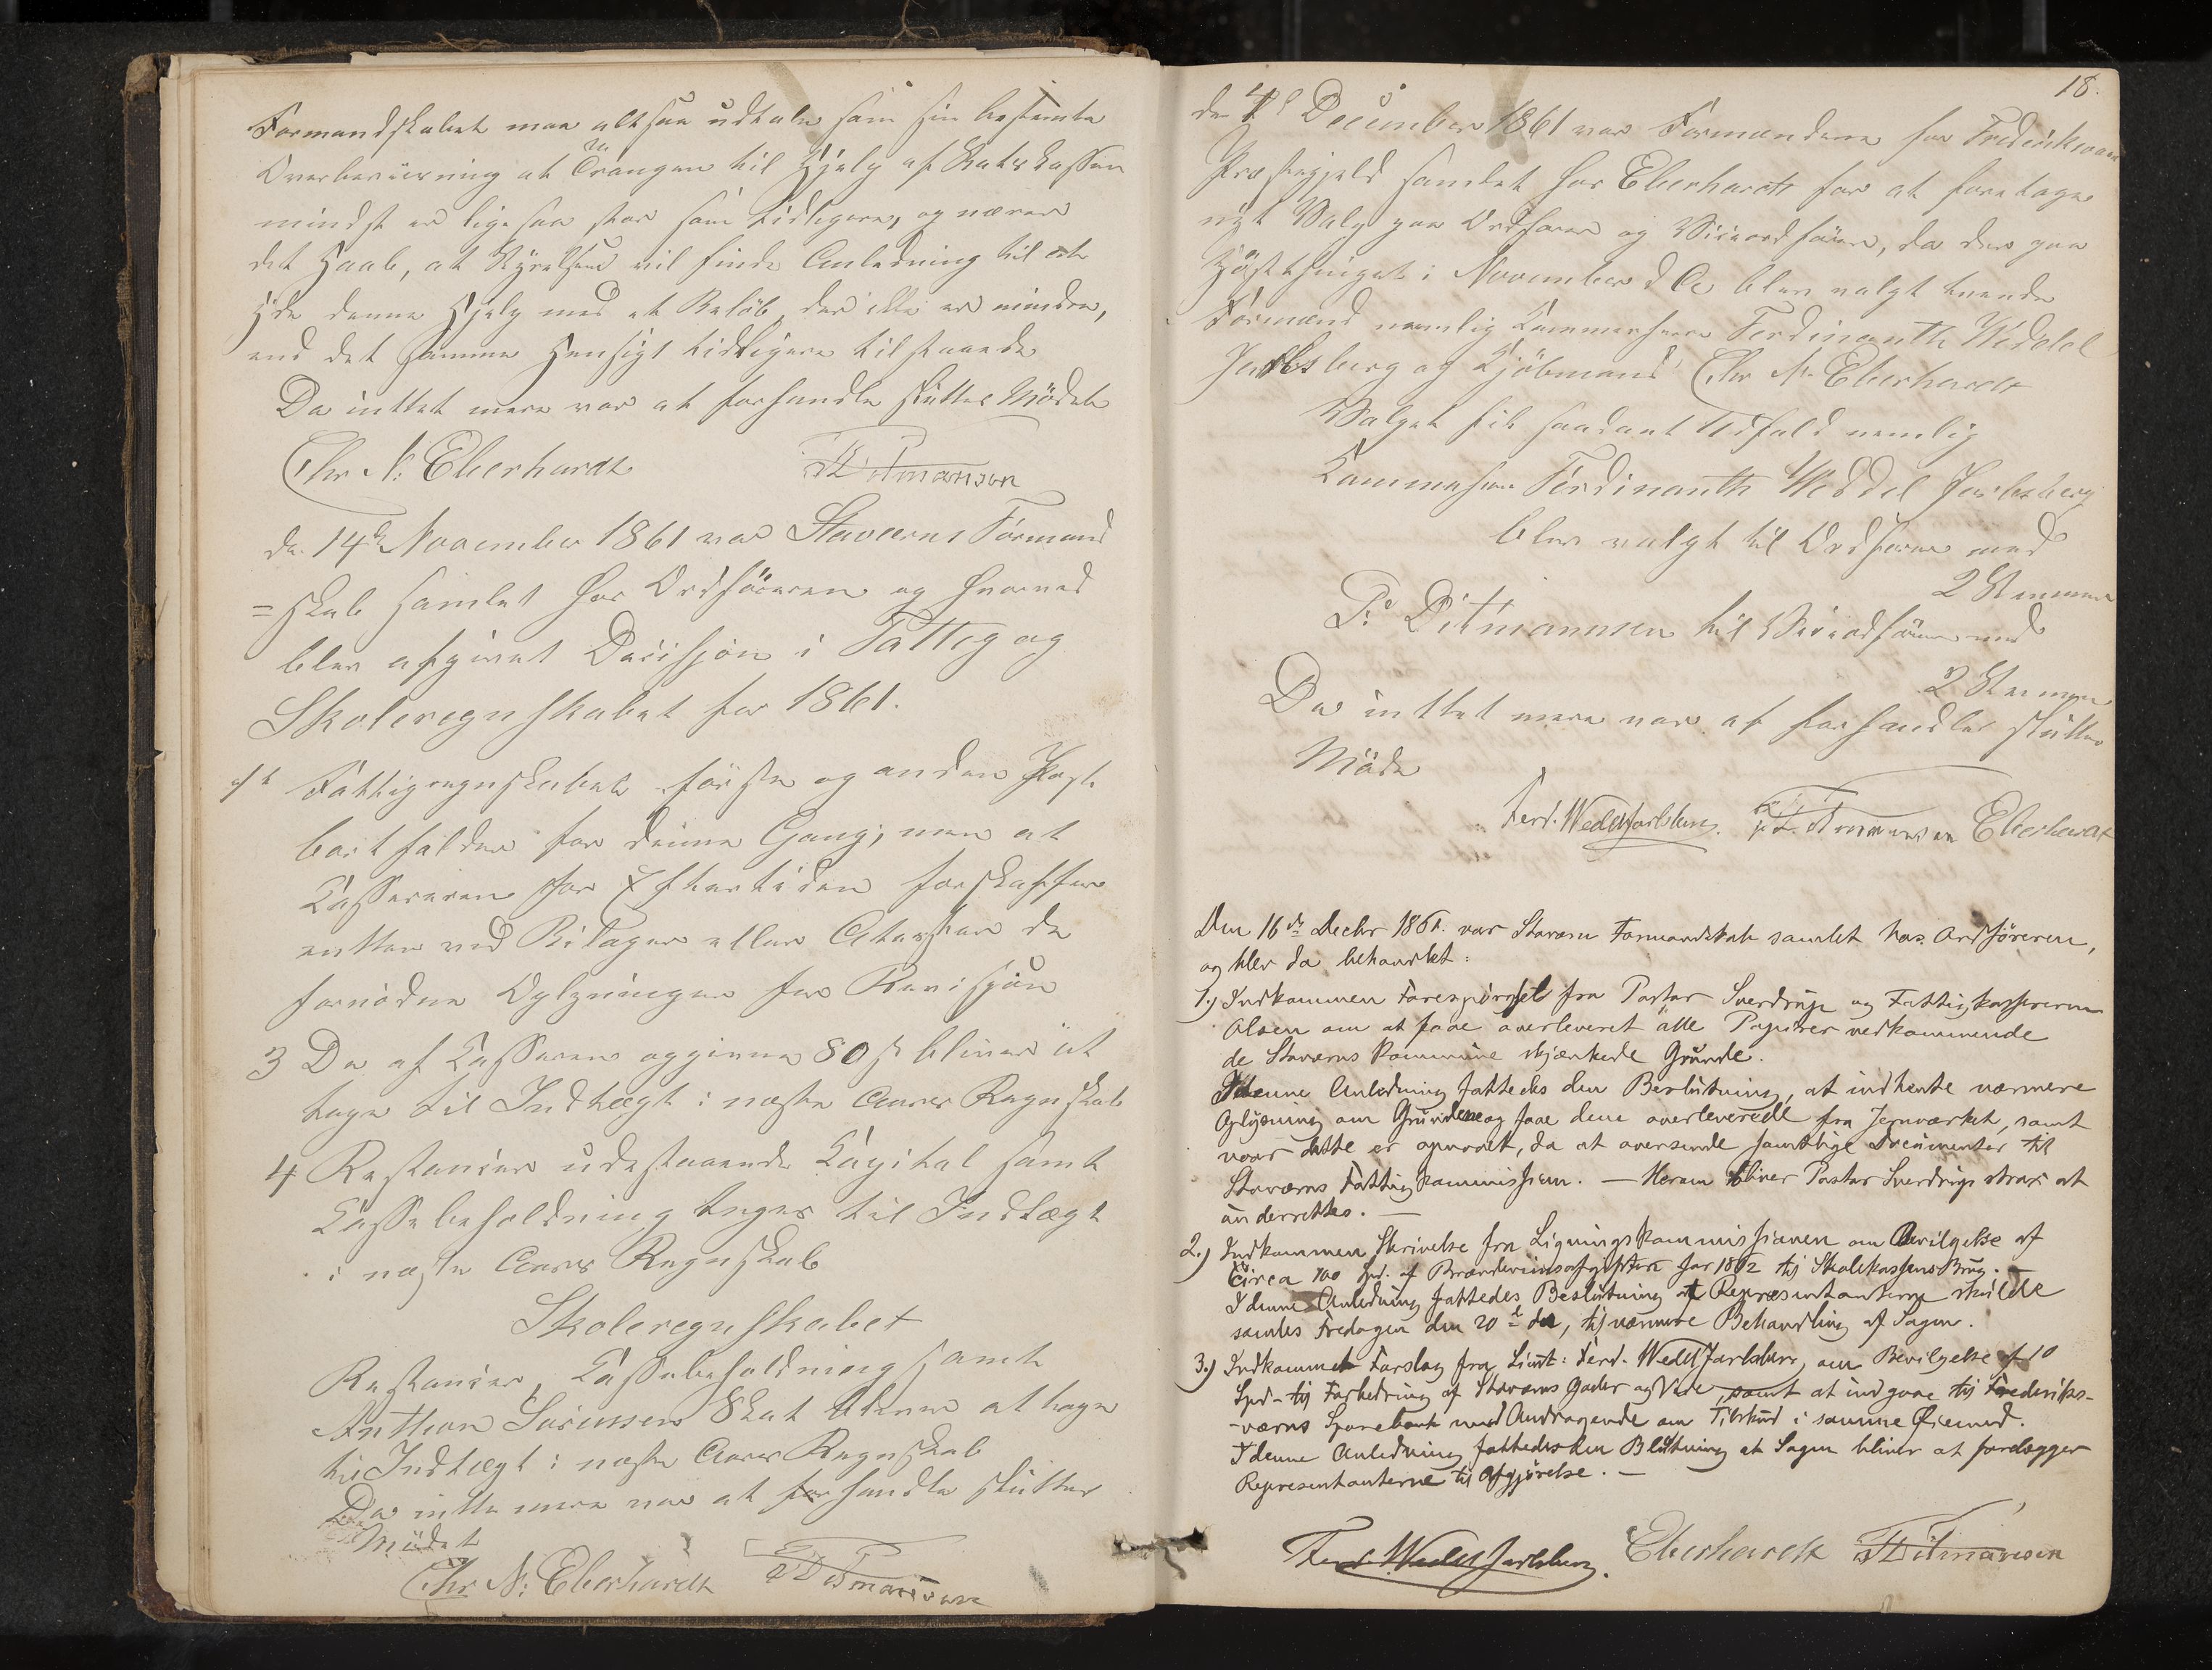 Formandskabet maa altsaa udtale som sin bestemte
Overbeviisning at Trangen til Hjelp af Statskassen
mindst er ligesaa stor som tidligere, og nærer
det Haab, at Styrelsen vil finde Anledning til at
yde denne Hjelp med et Beløb, der ikke er mindre,
end det samme Hensigt tidligere tilstaaede
Da inttet mere var at forhandle sluttes Mödet
Chr N: Eberhardt P Ditmansen
den 14de November 1861 var Staværns Formand
=skab samlet hos Ordföreren og hvorved
blev afgivet Decisjon i Fattig og
Skoleregnskabet for 1861.
Fattigregnskabet förste og anden Post
bortfalder for denne Gang, men at
Kassereren for Eftertiden forskaffer
entten ved Bilager eller Attester de
fornödne Oplysninger for Revisjon
3 De af Kassereren opgivne 80 s bliver at
tage til Indtægt i næste Aars Regnskab
4 Restancier udestaaende Kapital samt
Kassebeholdning tages til Indtægt
i næste Aars Regnskab
Skoleregnskabet
Restancier, Kassebeholdning samt
Anthon Sörensens Skat bliver at tage
til Indtægt i næste Aars Regnskab
Da intte mere var at forhandle sluttes
Mödet
Chr N: Eberhardt P Ditmansen
18.
den 4de December 1861 var Formændene for Frederiksværn
Præstegjeld samlet hos Eberhardt for at foretage
nyt Valg paa Ordförer og Viceordförer, da der paa
Høstthinget i November d A blev valgt tvende
Formænd nemlig Kammerherre Ferdinanth Wedelel
Jarlsberg og Kjöbmand Chr N. Eberhardt
Valget fik saadant Udfald nemlig
Kammerherre Ferdinanth Weddel Jarlsberg
blev valgt til Ordförer med
2 Stemmer
P. Ditmannsen til Viceordförer med
2 Stemmer
Da inttet mere var at forhandle sluttes
Möde
Ferd. Wedel Jarlsberg. P Ditmansen Eberhardt
Den 16de Decbr 1861. var Staværn Formandskab samlet hos Ordföreren,
og blev da behandlet:
1.) Indkommen Forespørgsel fra Pastor Sverdrup og Fattigkassereren
Olsen om at faae overleveret alle Papirer vedkommende
de Staværns Kommune skjænkede Grunde.
I denne Anledning fattedes den Beslutning, at indhente nærmere
Oplysning om Grundene og faae dem overleverede fra Jernværket, samt
naar dette er opnaaet, da at oversende samtlige Documenter til
Staværns Fattigkommission. — Herom bliver Pastor Sverdrup strax at
underrettes. —
2.) Indkommen Skrivelse fra Ligningskommissionen om Bevilgelse af
circa 100 Spd. af Brændeviinsafgiften for 1862 til Skolekassens Brug. —
I denne Anledning fattedes Beslutning at Repræsentanterne skulde
samles Fredagen den 20de ds, til nærmere Behandling af Sagen.
3.) Indkommet Forslag fra Lieut: Ferd. Wedel Jarlsberg, om Bevilgelse af 10
Spd - til Forbedring af Staværns Gader og Veie, samt at indgaae til Frederiks-
-værns Sparebank med Andragende om Tilskud i samme Øiemed.
I denne Anledning fattedes den Blutning at Sagen bliver at forelægges
Repræsentanterne til Afgjörelse. —
Ferd. Wedel Jarlsberg. Eberhardt P Ditmansen